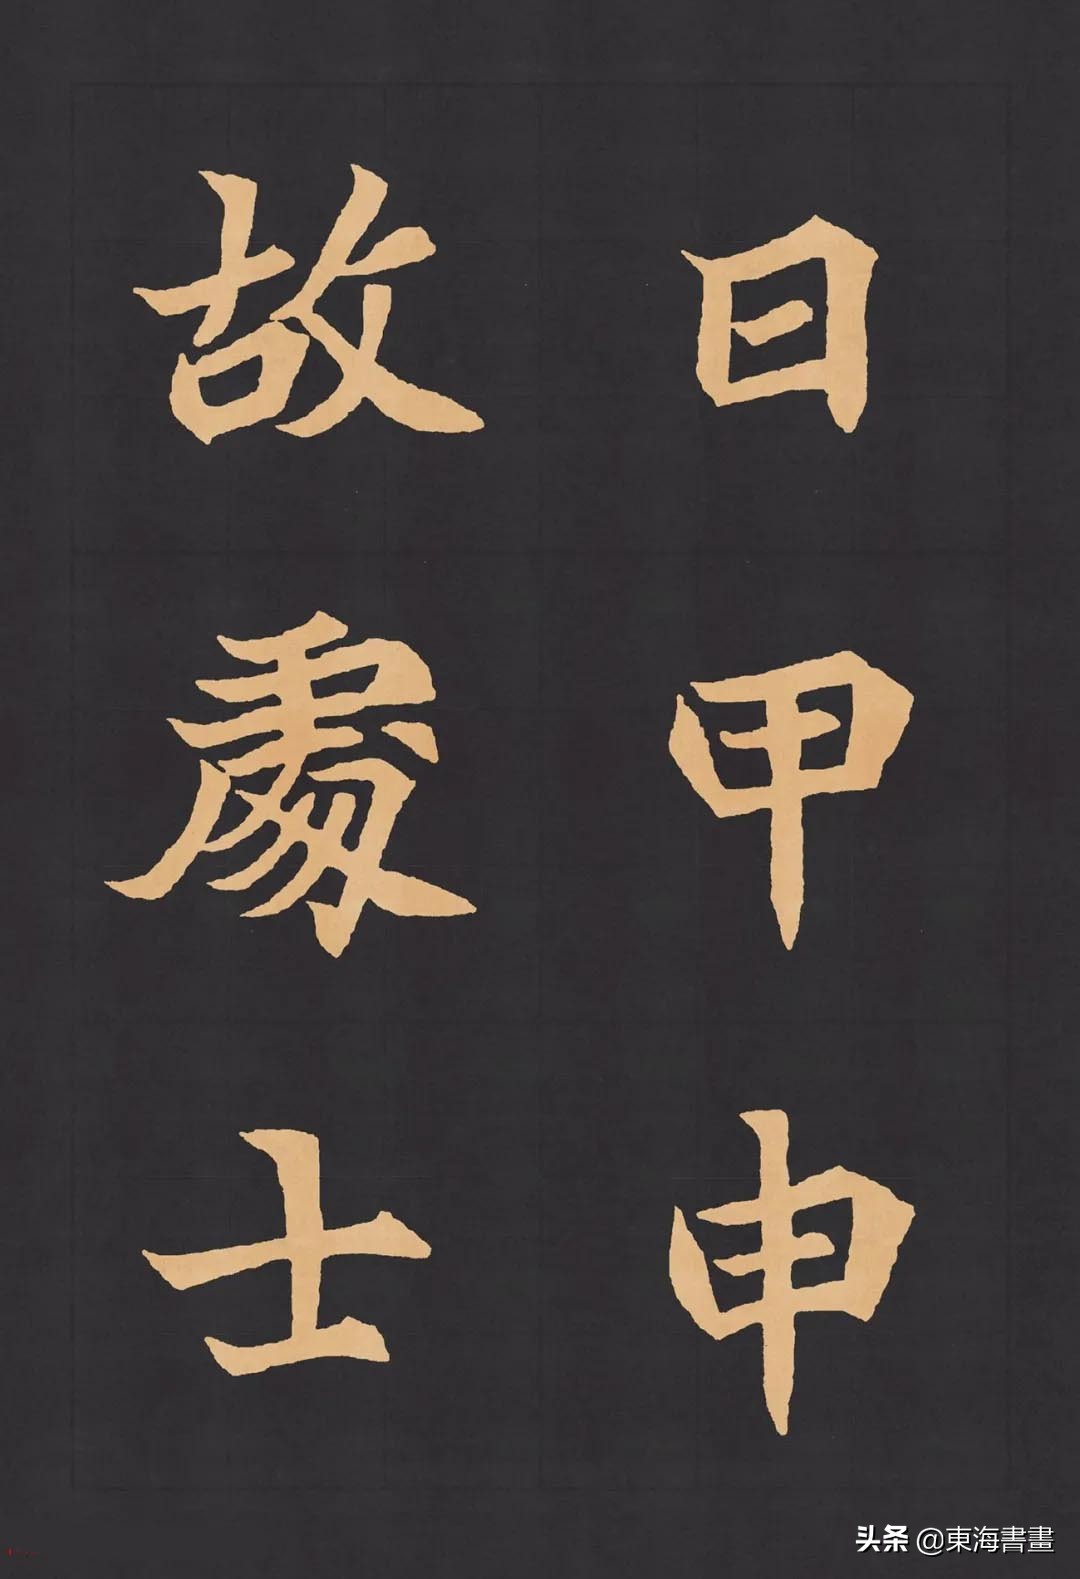 日甲申
故處士
头条 @東海書畫